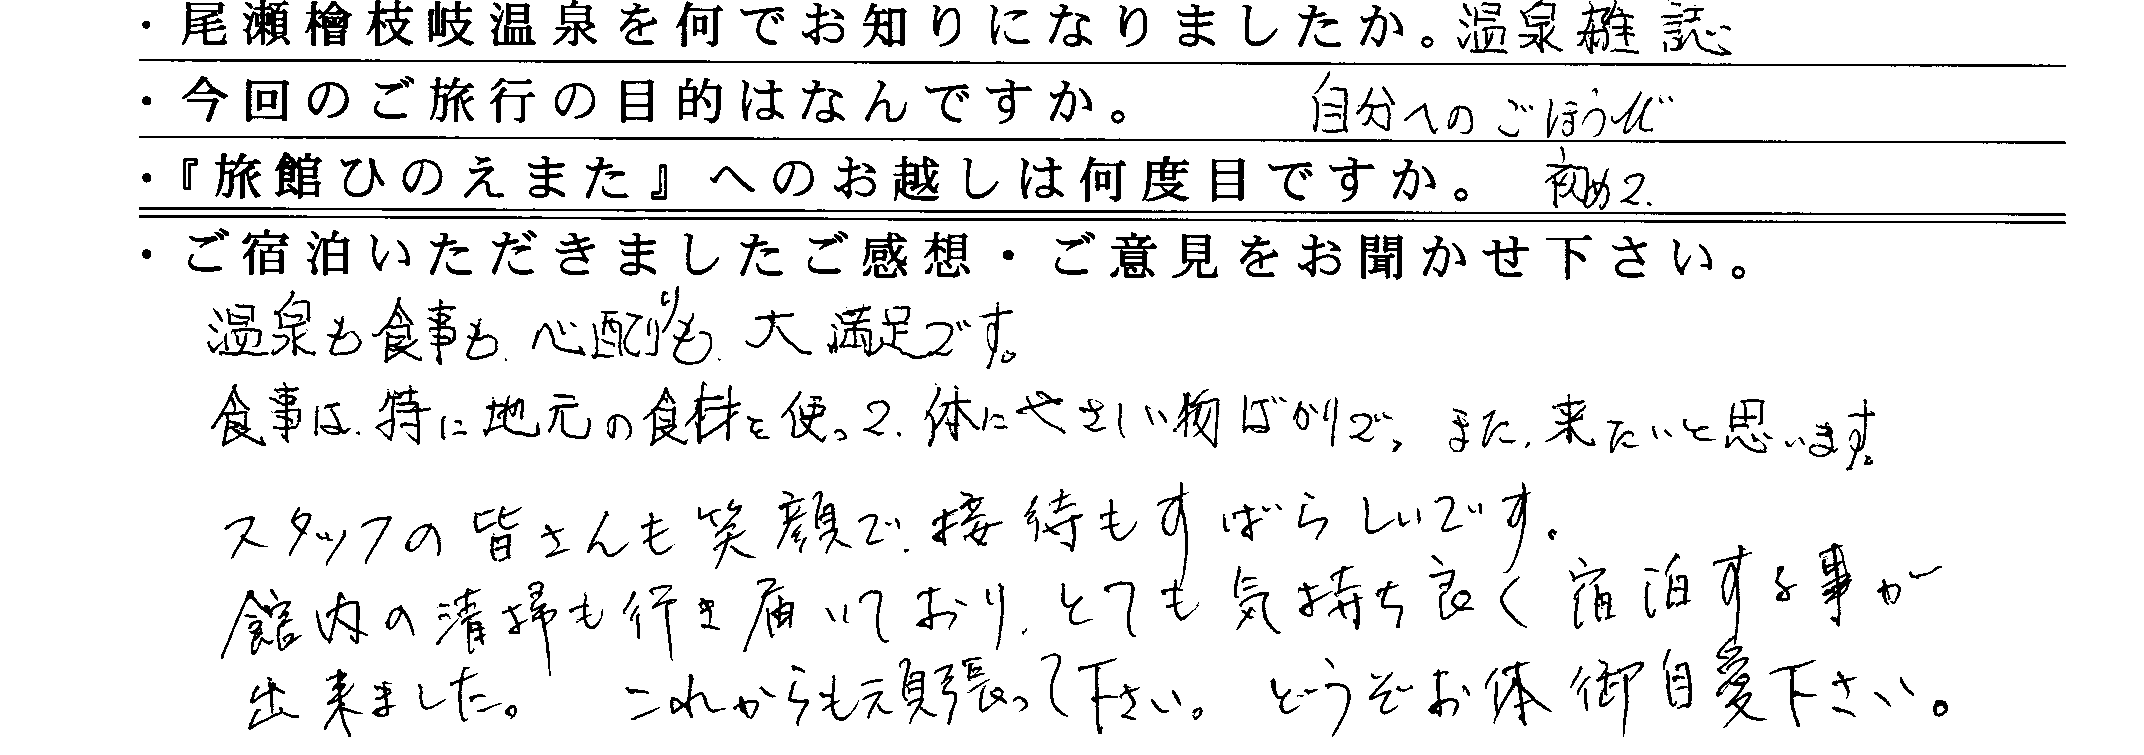 ・尾瀬檜枝岐温泉を何でお知りになりましたか。温泉雑誌
・今回のご旅行の目的はなんですか。 自分へのごほうび
・『旅館ひのえまた』へのお越しは何度目ですか。 初めて.
・ご宿泊いただきましたご感想・ご意見をお聞かせ下さい。
温泉も食事も、心配りも、大満足です。
食事は、特に地元の食材を使って、体にやさしい物ばかりで、また、来たいと思います。
スタッフの皆さんも笑顔で、接待もすばらしいです。
館内の清掃も行き届いており、とても気持ち良く宿泊する事が
出来ました。 これからも頑張って下さい。 どうぞお体御自愛下さい。